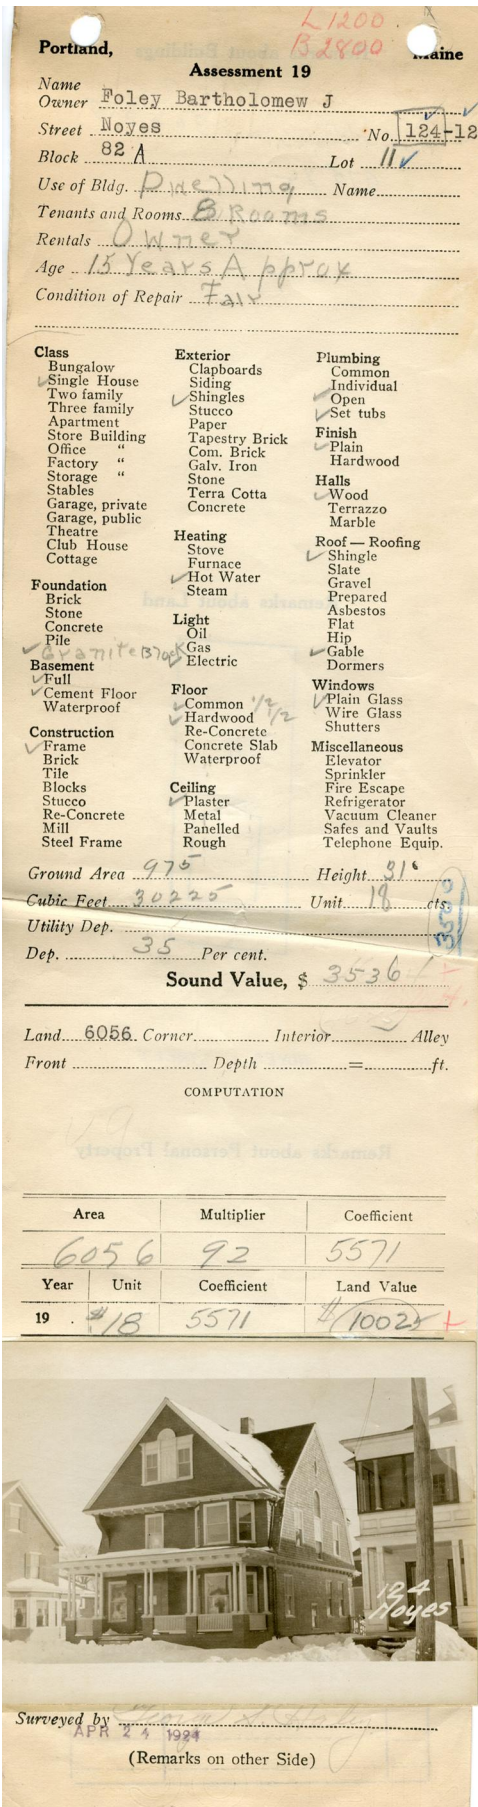 L 1200
B 2800
Portland, Maine
Assessment 19
Name
Owner Foley Bartholomew J
Street Noyes No. 124-12
Block 82 A Lot 11
Use of Bldg. Dwelling Name
Tenants and Rooms 8 Rooms
Rentals Owner
Age 15 Years Approx
Condition of Repair Fair
Class
Bungalow
Single House
Two family
Three family
Apartment
Store Building
Office "
Factory "
Storage "
Stables
Garage, private
Garage, public
Theatre
Club House
Cottage
Foundation
Brick
Stone
Concrete
Pile
Granite Block
Basement
Full
Cement Floor
Waterproof
Construction
Frame
Brick
Tile
Blocks
Stucco
Re-Concrete
Mill
Steel Frame
Exterior
Clapboards
Siding
Shingles
Stucco
Paper
Tapestry Brick
Com. Brick
Galv. Iron
Stone
Terra Cotta
Concrete
Heating
Stove
Furnace
Hot Water
Steam
Light
Oil
Gas
Electric
Floor
Common 1/2
Hardwood 1/2
Re-Concrete
Concrete Slab
Waterproof
Ceiling
Plaster
Metal
Panelled
Rough
Plumbing
Common
Individual
Open
Set tubs
Finish
Plain
Hardwood
Halls
Wood
Terrazzo
Marble
Roof — Roofing
Shingle
Slate
Gravel
Prepared
Asbestos
Flat
Hip
Gable
Dormers
Windows
Plain Glass
Wire Glass
Shutters
Miscellaneous
Elevator
Sprinkler
Fire Escape
Refrigerator
Vacuum Cleaner
Safes and Vaults
Telephone Equip.
Ground Area 975 Height 31'
Cubic Feet 30225 Unit 18 cts.
3500
Utility Dep.
Dep. 35 Per cent.
Sound Value, $ 3536
Land 6056 Corner Interior Alley
Front Depth = ft.
COMPUTATION
Area Multiplier Coefficient
6056 92 5571
Year Unit Coefficient Land Value
19 . $18 5571 $ 1002
124
Noyes
Surveyed by
APR 24 1924
(Remarks on other Side)